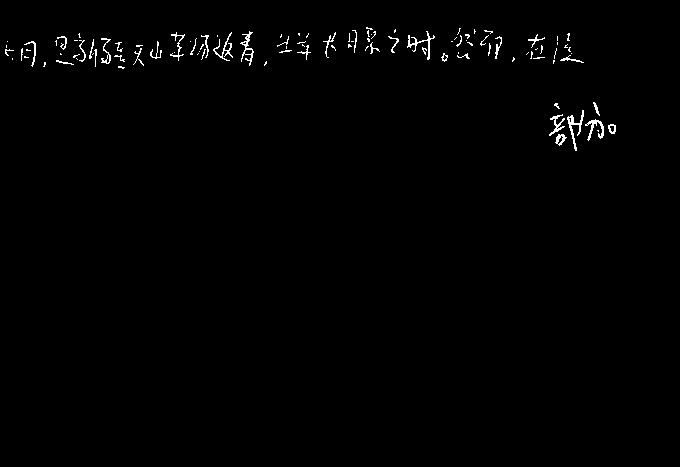 七月,是新疆天山草场返青,牛羊长膘之时。然而,在这
部分。